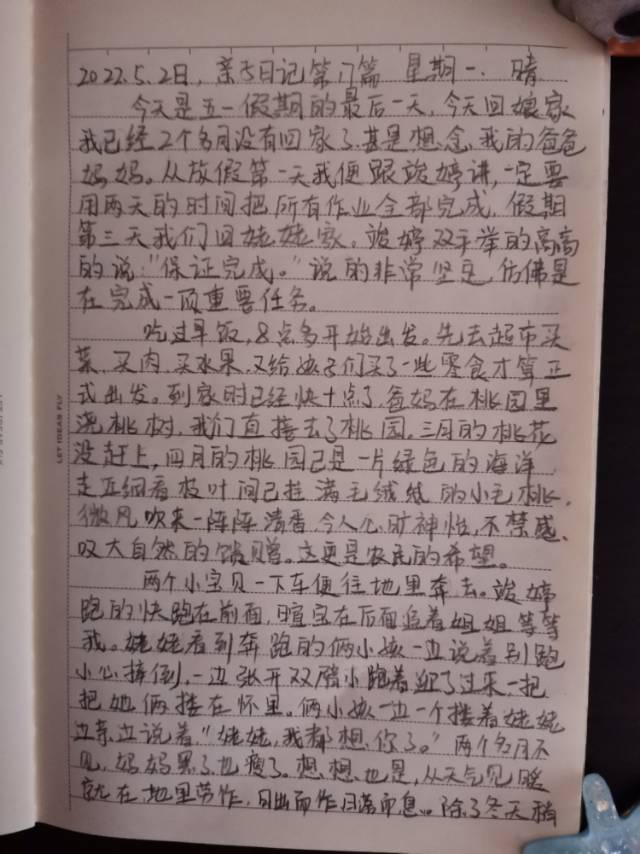 2022.5.2日，亲子日记第17篇 星期一. 晴
今天是五一假期的最后一天，今天回娘家
我已经2个多月没有回家了，甚是想念，我的爸爸
妈妈。从放假第一天我便跟竣婷讲，一定要
用两天的时间把所有作业全部完成，假期
第三天我们回姥姥家，竣婷双手举的高高
的说："保证完成。"说的非常坚定，仿佛是
在完成一项重要任务。
吃过早饭，8点多开始出发。先去超市买
菜、买肉、买水果，又给孩子们买了一些零食才算正
式出发。到家时已经快十点了，爸妈在桃园里
浇桃树，我们直接去了桃园。三月的桃花
没赶上，四月的桃园已是一片绿色的海洋
走近细看枝叶间已挂满毛绒绒的小毛桃，
微风吹来一阵阵清香令人心旷神怡，不禁感
叹大自然的馈赠。这更是农民的希望。
两个小宝贝一下车便往地里奔去。竣婷
跑的快跑在前面，暄宝在后面追着姐姐等等
我。姥姥看到奔跑的俩小孩一边说着别跑
小心摔倒，一边张开双臂小跑着迎了过来一把
把她俩搂在怀里。俩小孩一边一个搂着姥姥
边亲边说着"姥姥，我都想你了。"两个多月不
见，妈妈黑了也瘦了。想想也是，从天气见暖
就在地里劳作，日出而作日落而息… 除了冬天稍
LET IDEAS FLY